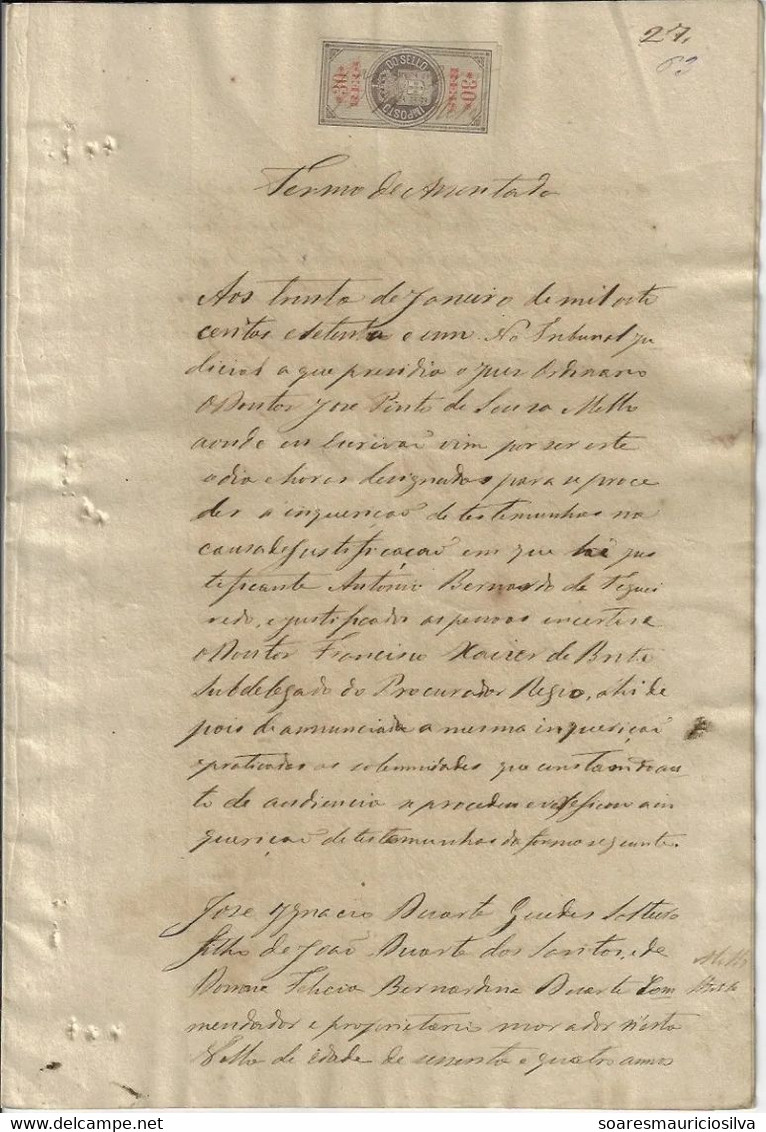 27.
63
30
REIS
IMPOSTO DO SELLO
30
REIS
Termo de Assentada
Aos trinta de Janeiro de mil oito
centos e setenta e um No Tribunal ju
dicial a que presidio o Juiz Ordinario
o Doutor Jose Pinto de Souza Mello
aonde eu Escrivaõ vim por ser este
o dia e horas designados para se proce
der a inquiriçaõ de testemunhas na
causa de Justificaçaõ em que hé jus
tificante António Bernardo de Figuei
redo, e justificados as pessoas incertas e
o Doutor Francisco Xavier de Brito
Subdelegado do Procurador Regio, ahi de
pois de annunciada a mesma inquiriçaõ
e praticadas as solemnidades que constam do au
to de audiencia se procedeu e a in
quiriçaõ de testemunhas da forma seguinte.
Jose Ignacio Duarte Guedes solteiro
filho de Joaõ Duarte dos Santos, e de
Dona Felicia Bernardina Duarte Com
mendador e proprietario morador n'esta
Villa de idade de sessenta e quatro annos
Mello
soaresmauriciosilva